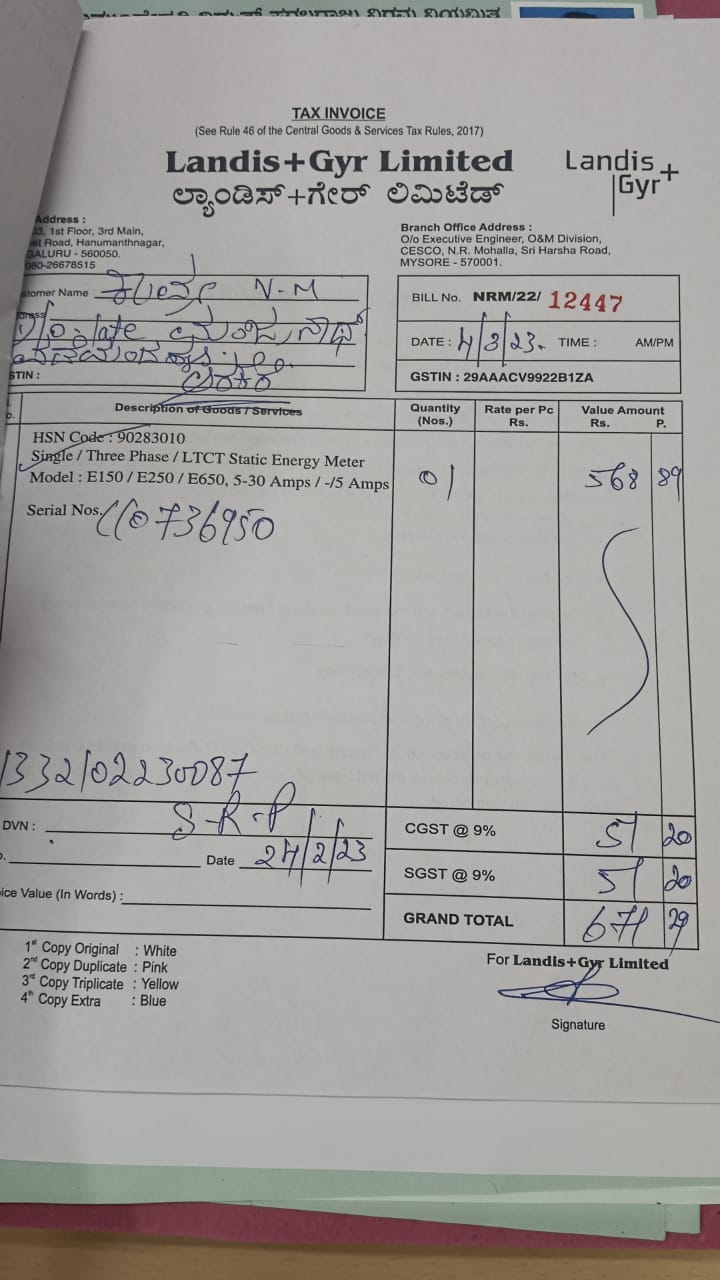 TAX INVOICE
(See Rule 46 of the Central Goods & Services Tax Rules, 2017)
Landis+Gyr Limited
ಲ್ಯಾಂಡಿಸ್+ಗೇರ್ ಲಿಮಿಟೆಡ್
Landis+
Gyr
Address :
1st Floor, 3rd Main,
Road, Hanumanthnagar,
GALURU - 560050.
080-26678515
Branch Office Address :
O/o Executive Engineer, O&M Division,
CESCO, N.R. Mohalla, Sri Harsha Road,
MYSORE - 570001.
stomer Name N-M
late
STIN :
BILL No. NRM/22/ 12447
DATE : 4/3/23. TIME : AM/PM
GSTIN : 29AAACV9922B1ZA
Description of Goods / Services
Quantity (Nos.)
Rate per Pc Rs.
Value Amount Rs. P.
HSN Code : 90283010
Single / Three Phase / LTCT Static Energy Meter
Model : E150 / E250 / E650, 5-30 Amps / -/5 Amps
01
568 89
Serial Nos. 110736950
1332/02230087
DVN : S-R-P
Date 24/2/23
ice Value (In Words) :
CGST @ 9% 51 20
SGST @ 9% 51 20
GRAND TOTAL 671 29
1st Copy Original : White
2nd Copy Duplicate : Pink
3rd Copy Triplicate : Yellow
4th Copy Extra : Blue
For Landis+Gyr Limited
Signature